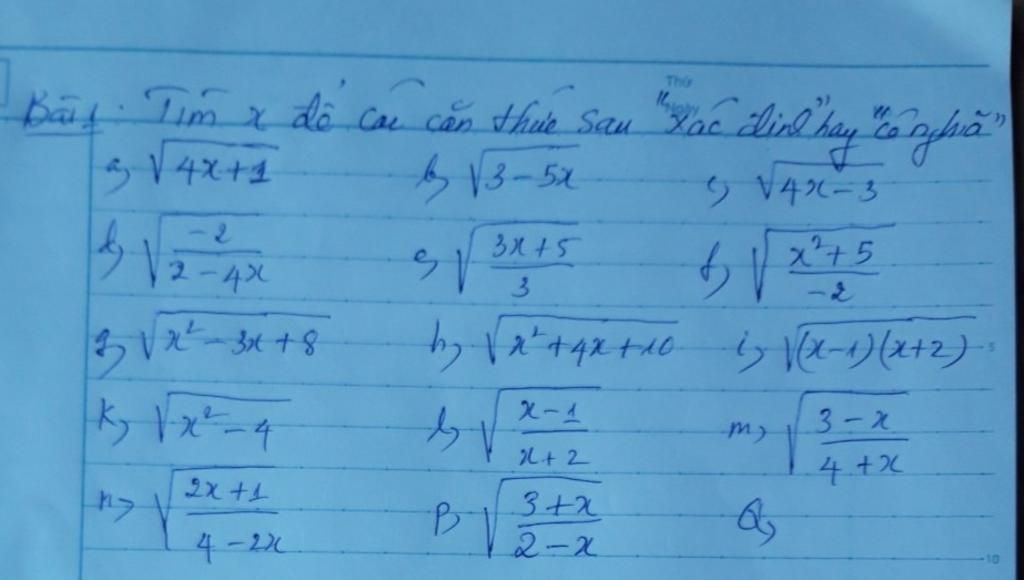 Thứ
Ngày
Bài 1: Tìm x để các căn thức sau "xác định" hay "có nghĩa"
a, √(4x+1) b, √(3-5x) c, √(4x-3)
d, √(-2/(2-4x)) e, √((3x+5)/3) f, √((x²+5)/-2)
g, √(x²-3x+8) h, √(x²+4x+10) i, √((x-1)(x+2))
5
k, √(x²-4) l, √((x-1)/(x+2)) m, √((3-x)/(4+x))
n, √((2x+1)/(4-2x)) p, √((3+x)/(2-x)) Q,
10